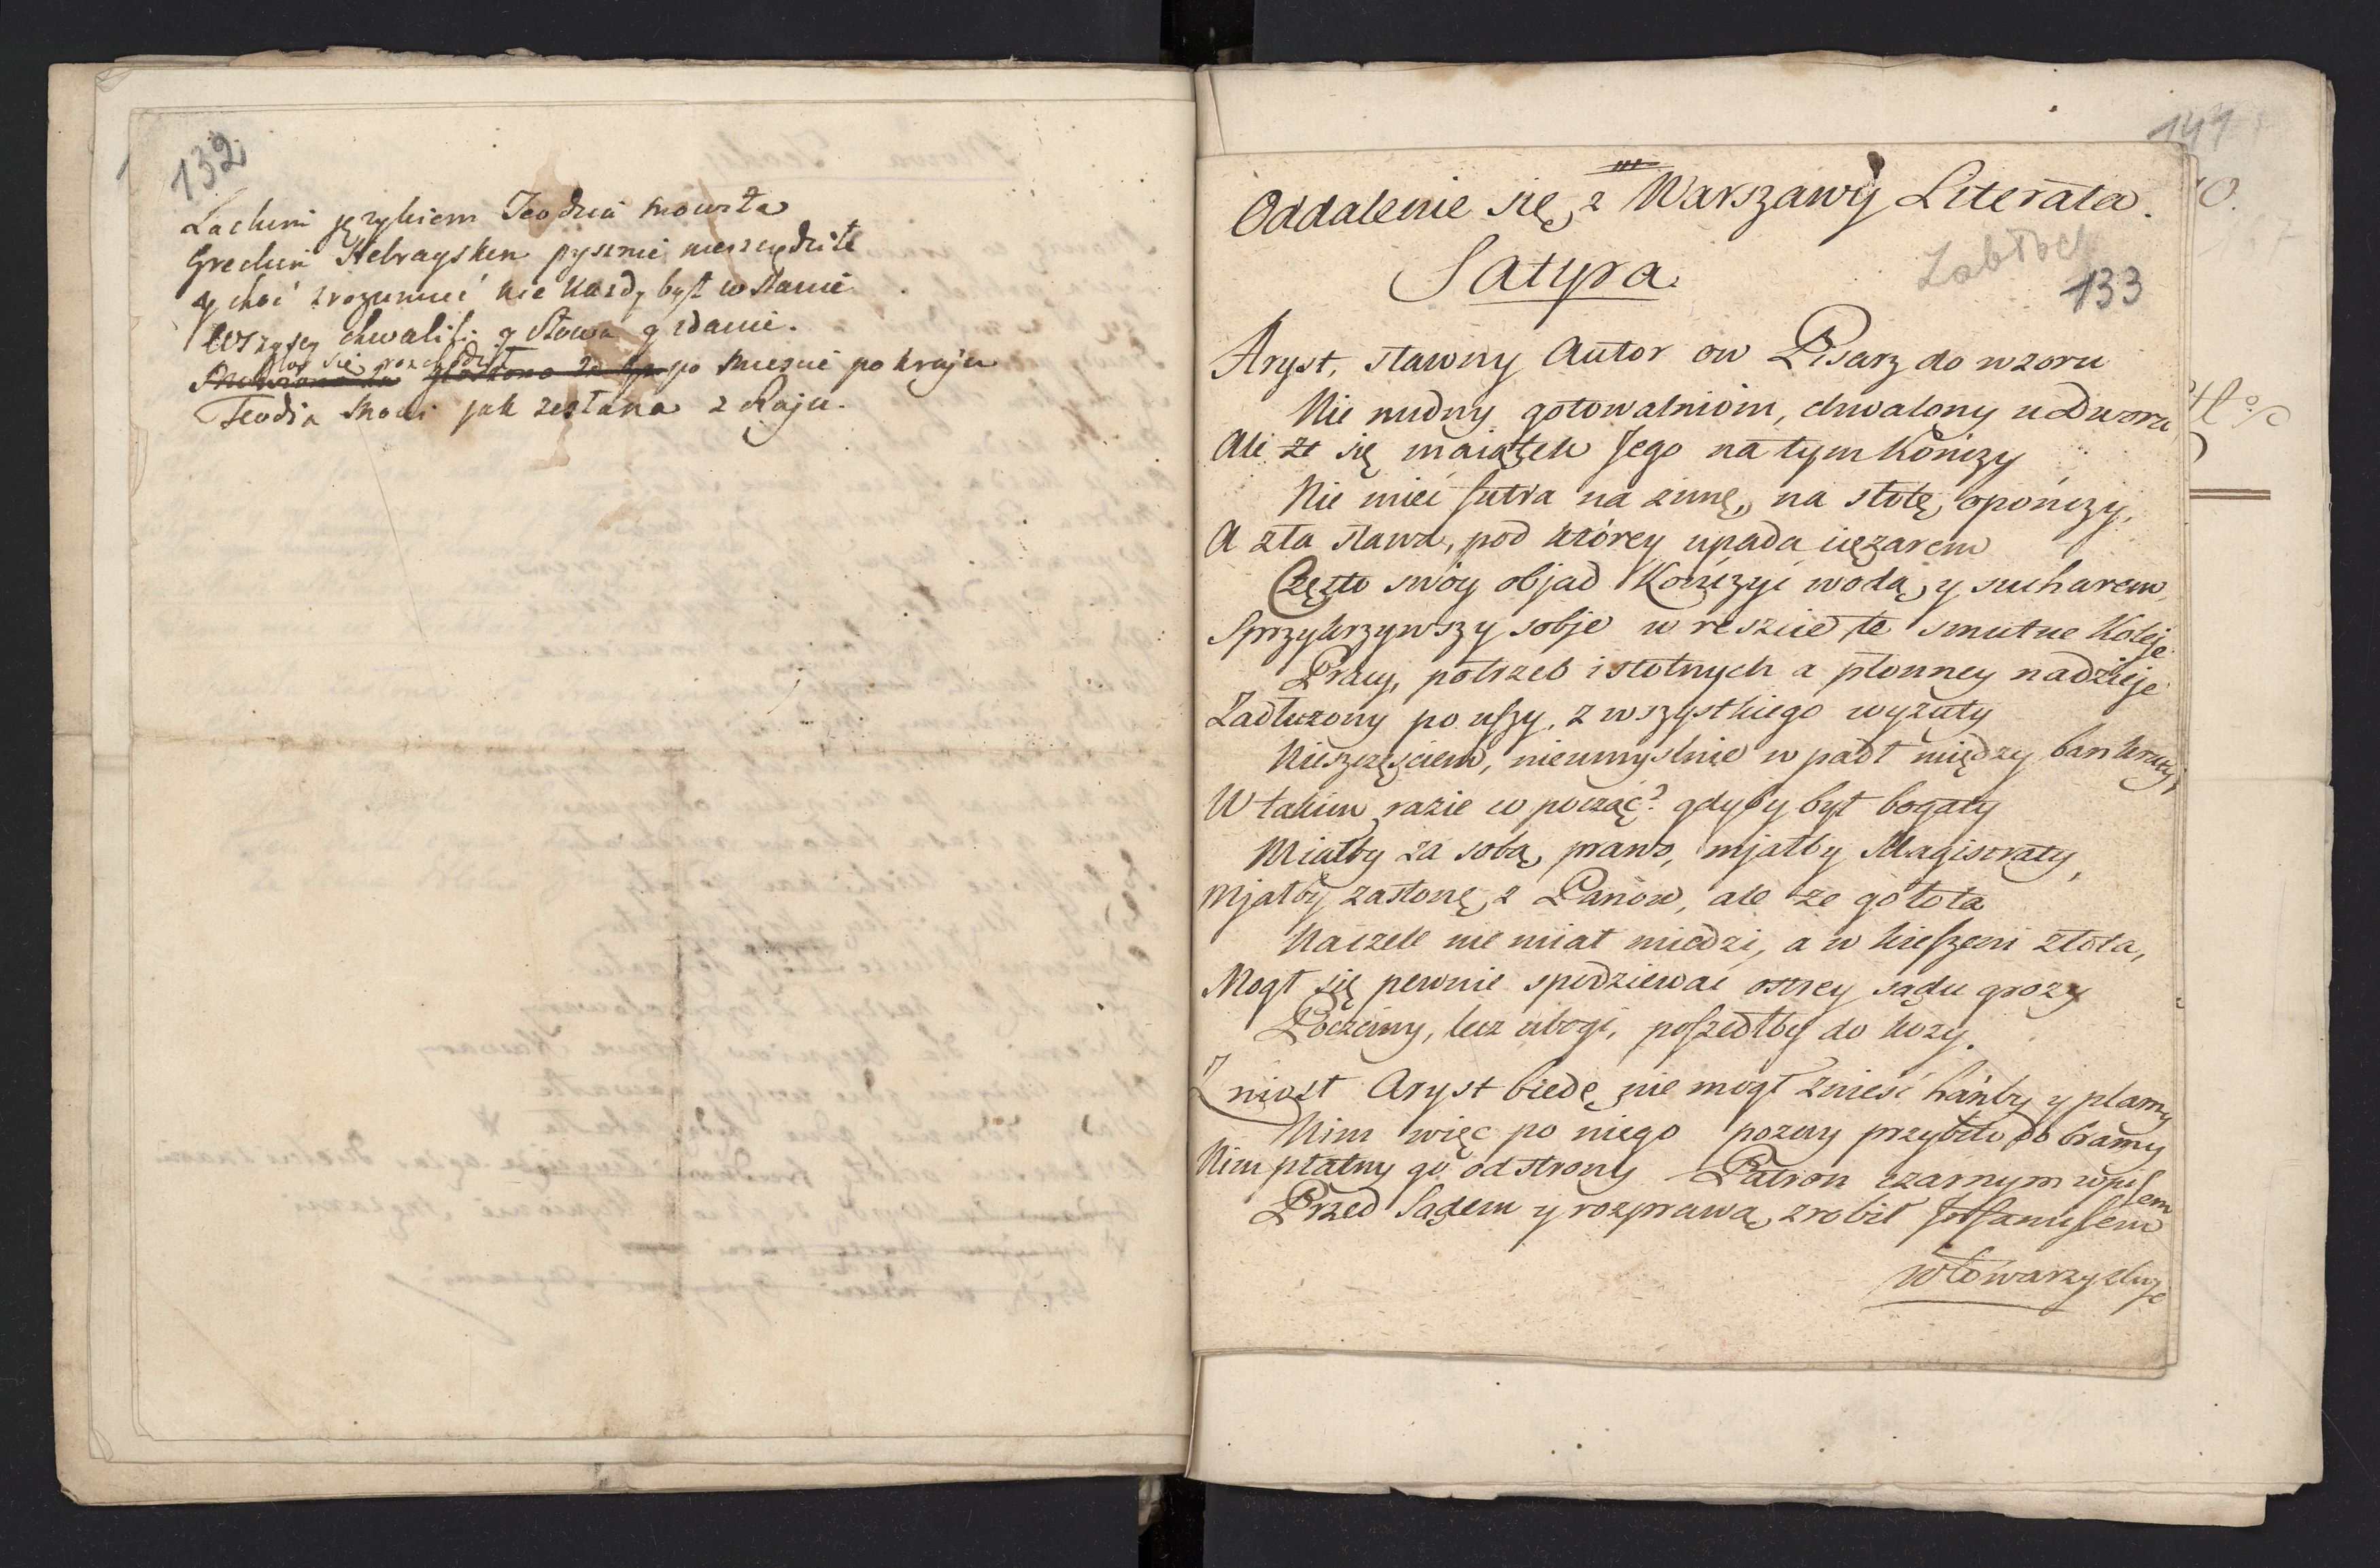 132
Lackim językiem Teodzia mowiła
Greckim Hebrayskem pysznie
y choć zrozumieć nie każdy był w stanie
Wszyscy chwalili y słowa y zdanie.
głos się rozchodził
po mieście po kraju
Teodzia mowi jak zesłana z Raju.
141
Oddalenie się z Warszawy Literata.
Satyra.
Zabłock
133
Aryst, sławny Autor ow Pisarz do wzoru
Nie nudny gotowalniom, chwalony u Dworu
Ale że się maiątek Jego na tym kończy
Nie mieć futra na zimę, na słotę opończy,
A zła sława, pod którey upada ciężarem
Często swóy objad kończyć wodą y sucharem,
Sprzykrzywszy sobje w reszcie te smutne koleje
Pracy, potrzeb istotnych a płonney nadzieje
Zadłużony po uszy, z wszystkiego wyzuty
Nieszczęściem, nieumyslnie wpadł między bankruty,
W takim razie co począć? gdyby był bogaty
Miałby za sobą prawo, mjałby Magistraty,
Mjałby zasłonę z Panów, ale że gołota
Na czele nie miał miedzi, a w kieszeni złota,
Mogł się pewnie spodziewać ostrey sądu grozy
Poczciwy, lecz ubogi, poszedłby do kozy.
Zniosł Aryst biedę, nie mogł znieść hańby y plamy
Nim więc po niego pozwy przybito do bramy
Nim płatny go od strony Patron czarnym wpisem
Przed Sądem y rozprawą zrobił
w towarzystwie